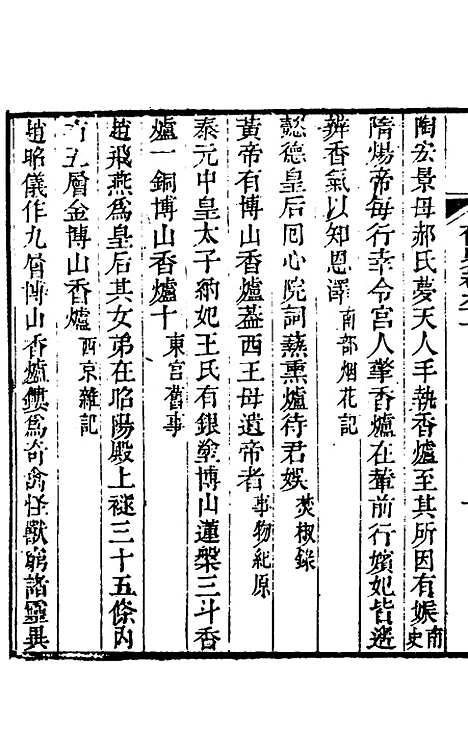 陶宏景母郝氏夢天人手執香爐至其所因有娠南史
隋煬帝每行幸令宮人擎香爐在輦前行嬪妃皆遙
辨香氣以知恩澤南部烟花記
懿德皇后囘心院詞爇熏爐待君娛焚椒錄
黃帝有博山香爐葢西王母遺帝者事物紀原
泰元中皇太子納妃王氏有銀塗博山蓮槃三斗香
爐一銅博山香爐十東宮舊事
趙飛燕爲皇后其女弟在昭陽殿上襚三十五條內
有五層金博山香爐西京雜記
趙昭儀作九層博山香爐鏤爲奇禽怪獸窮諸靈異